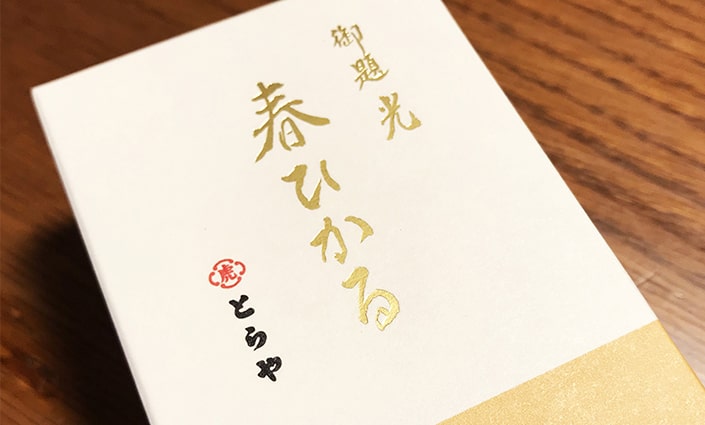 御題 光
春ひかる
虎
とらや